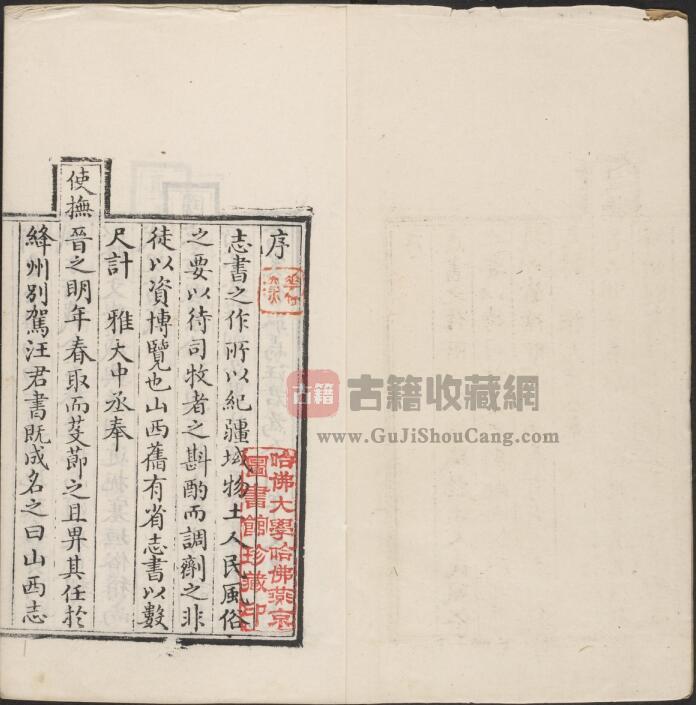 序
志書之作所以紀疆域物土人民風俗
之要以待司牧者之斟酌而調劑之非
徒以資博覽也山西舊有省志書以數
尺計 雅大中丞奉
使撫晉之明年春取而芟莭之且畀其任於
絳州别駕汪君書既成名之曰山西志
哈佛大學哈佛燕京
圖書館珍藏印
古籍
古籍收藏網
www.GuJiShouCang.com